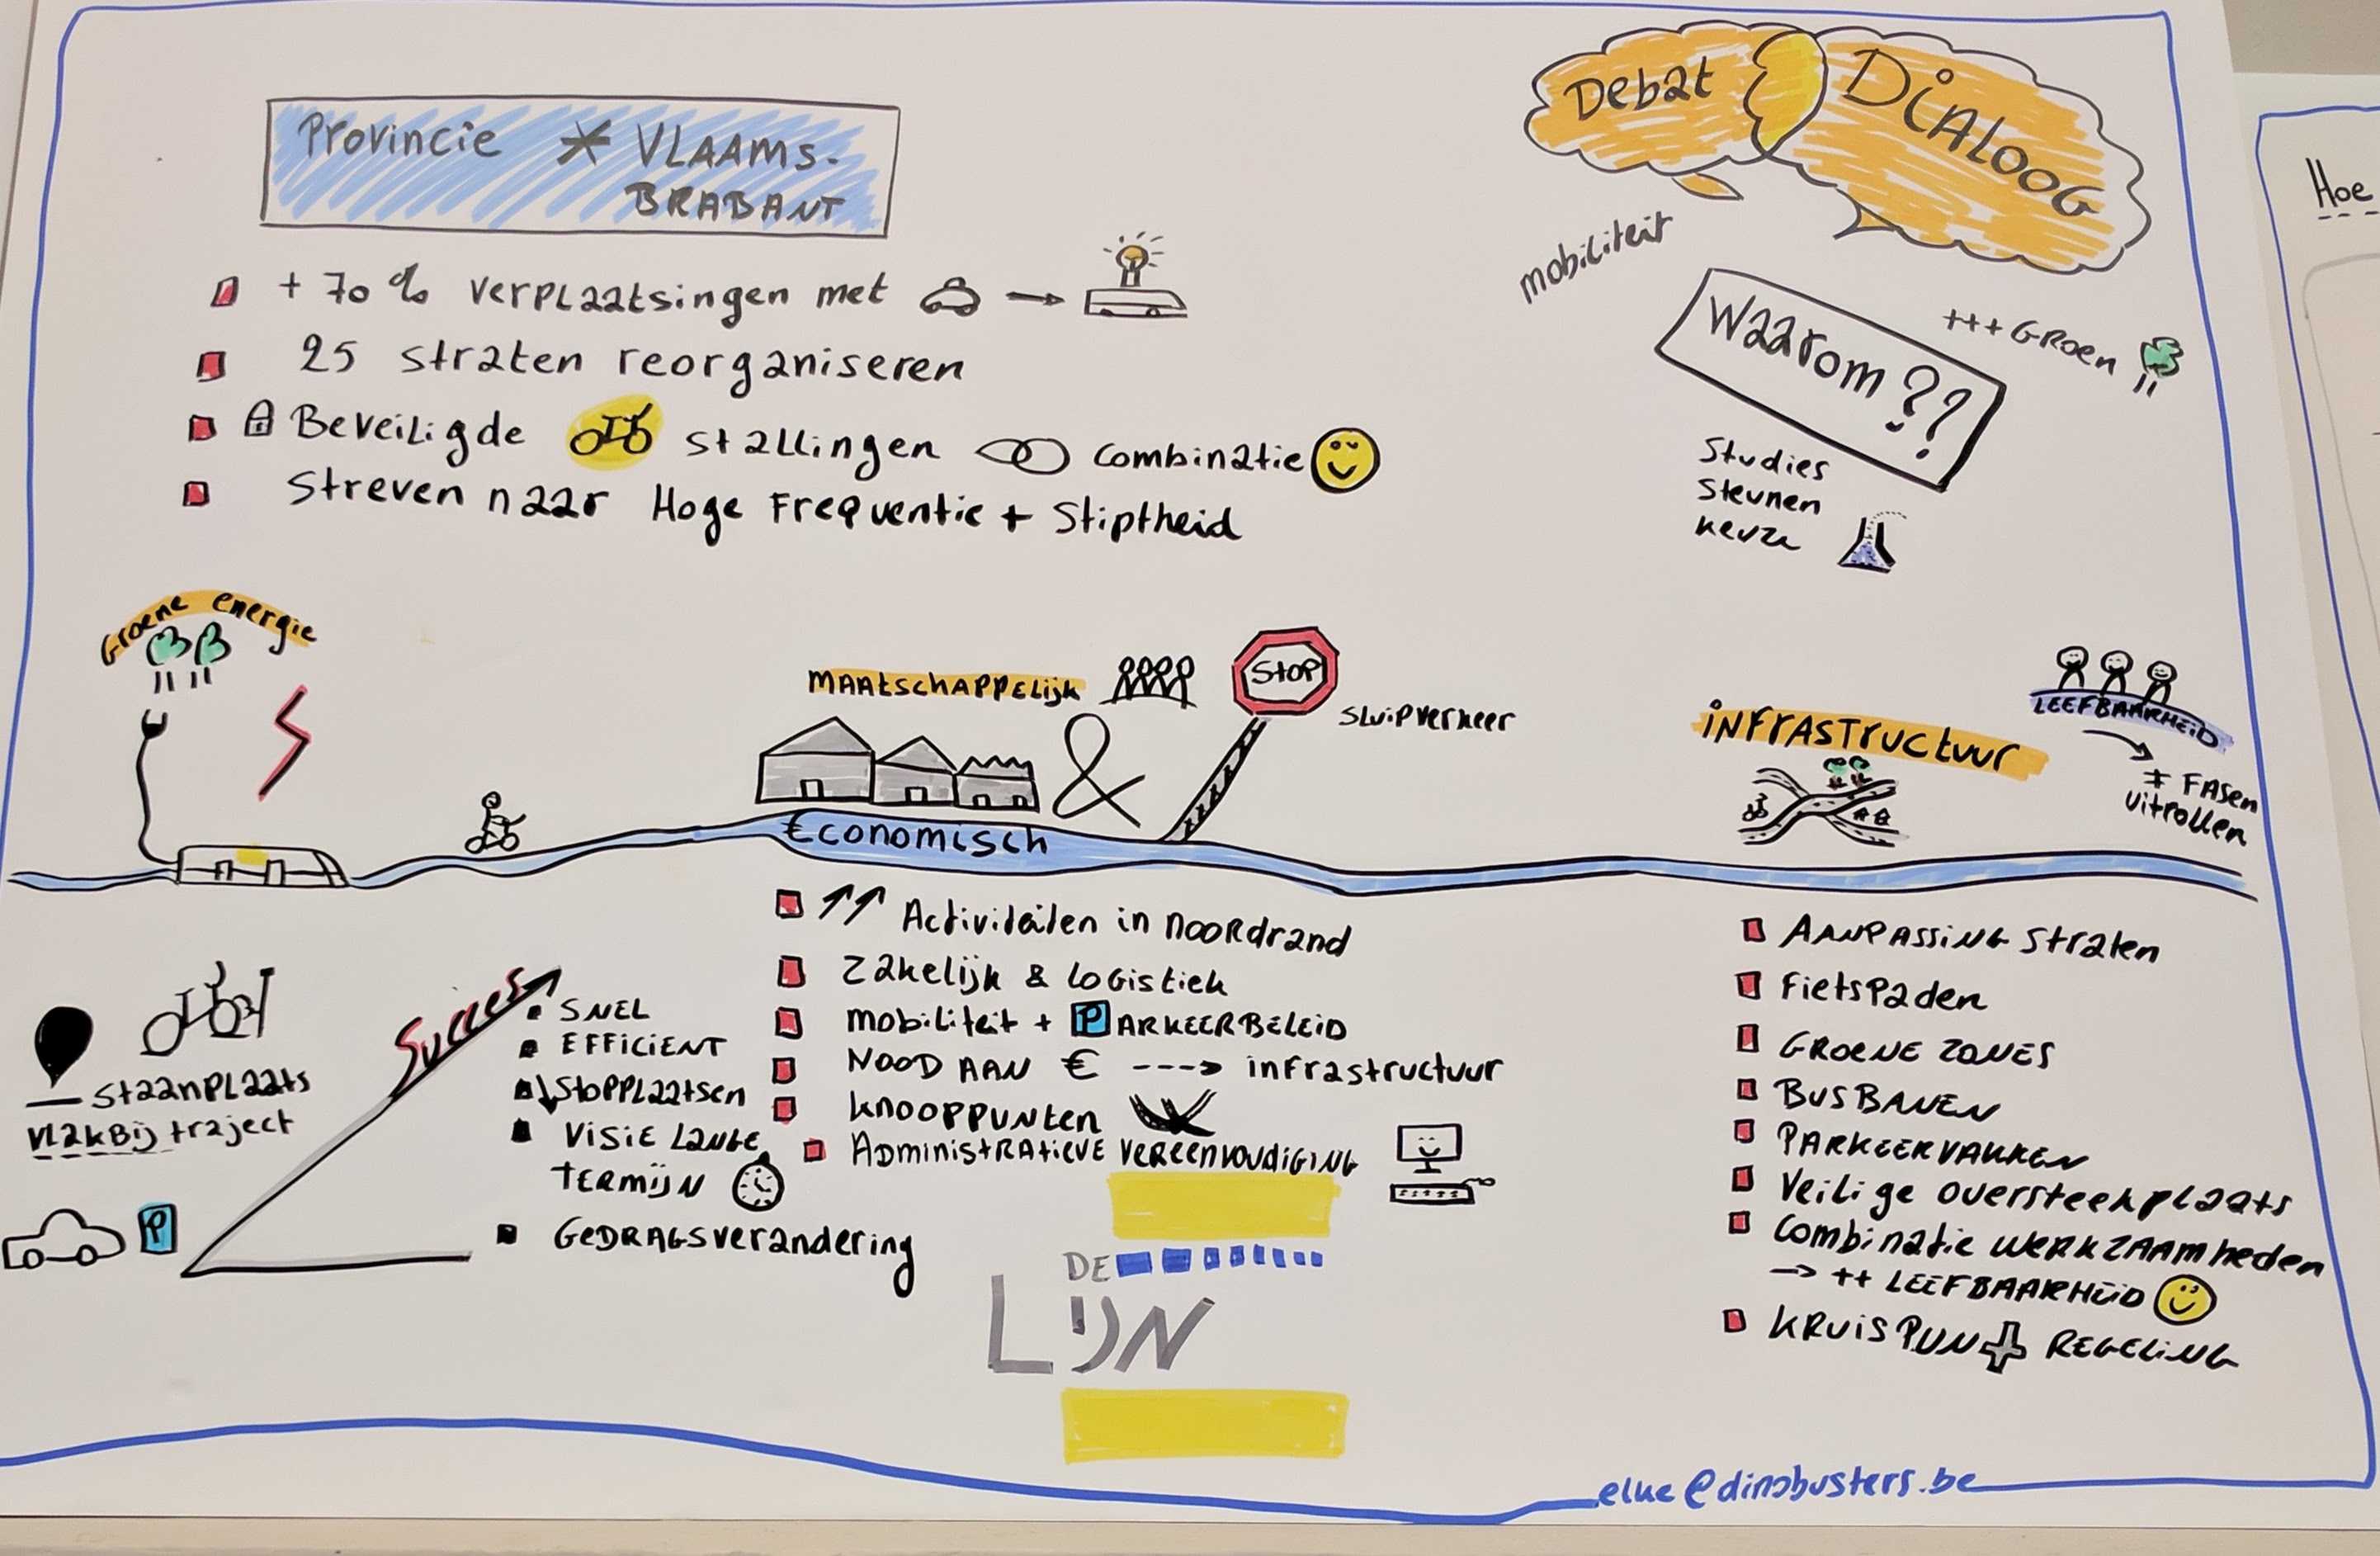 Provincie * VLAAMS-
BRABANT
+ 70 % verplaatsingen met
25 straten reorganiseren
Beveiligde stallingen combinatie
Streven naar Hoge Frequentie + Stiptheid
Debat
DiALOOG
mobiliteit
Waarom ??
+++ GRoen
Studies
steunen
keuze
Groene energie
MAAtSCHAPPELijk
STOP
sluipverkeer
Economisch
iNFrASTrUCtuur
LEEFBAARHEiD
≠ FASen
uitrollen
STAANPLAATS
VLAKBij traject
P
Succes
SNEL
EFFICIENT
↓ StoPPLaatsen
VISIE LANGE
TERMIJN
GEDRAGSverandering
↑↑ Activiteiten in Noordrand
Zakelijk & LOGistiek
mobiliteit + PARKEERBELEID
NOOD AAN € ---> infrastructuur
KNOOPPUNTEN
ADMINIStRAtiEVE VEREENVOUDIGING
DE
LIJN
AANPASSiNG Straten
FietsPaden
GROENE ZONES
BUSBANEN
PARKEERVAKKEN
Veilige oversteekplaats
Combinatie WERKZAAMheden
-> ++ LEEFBAARHEiD
KRUiSPUNt REGELiNG
elke@dinobusters.be
Hoe